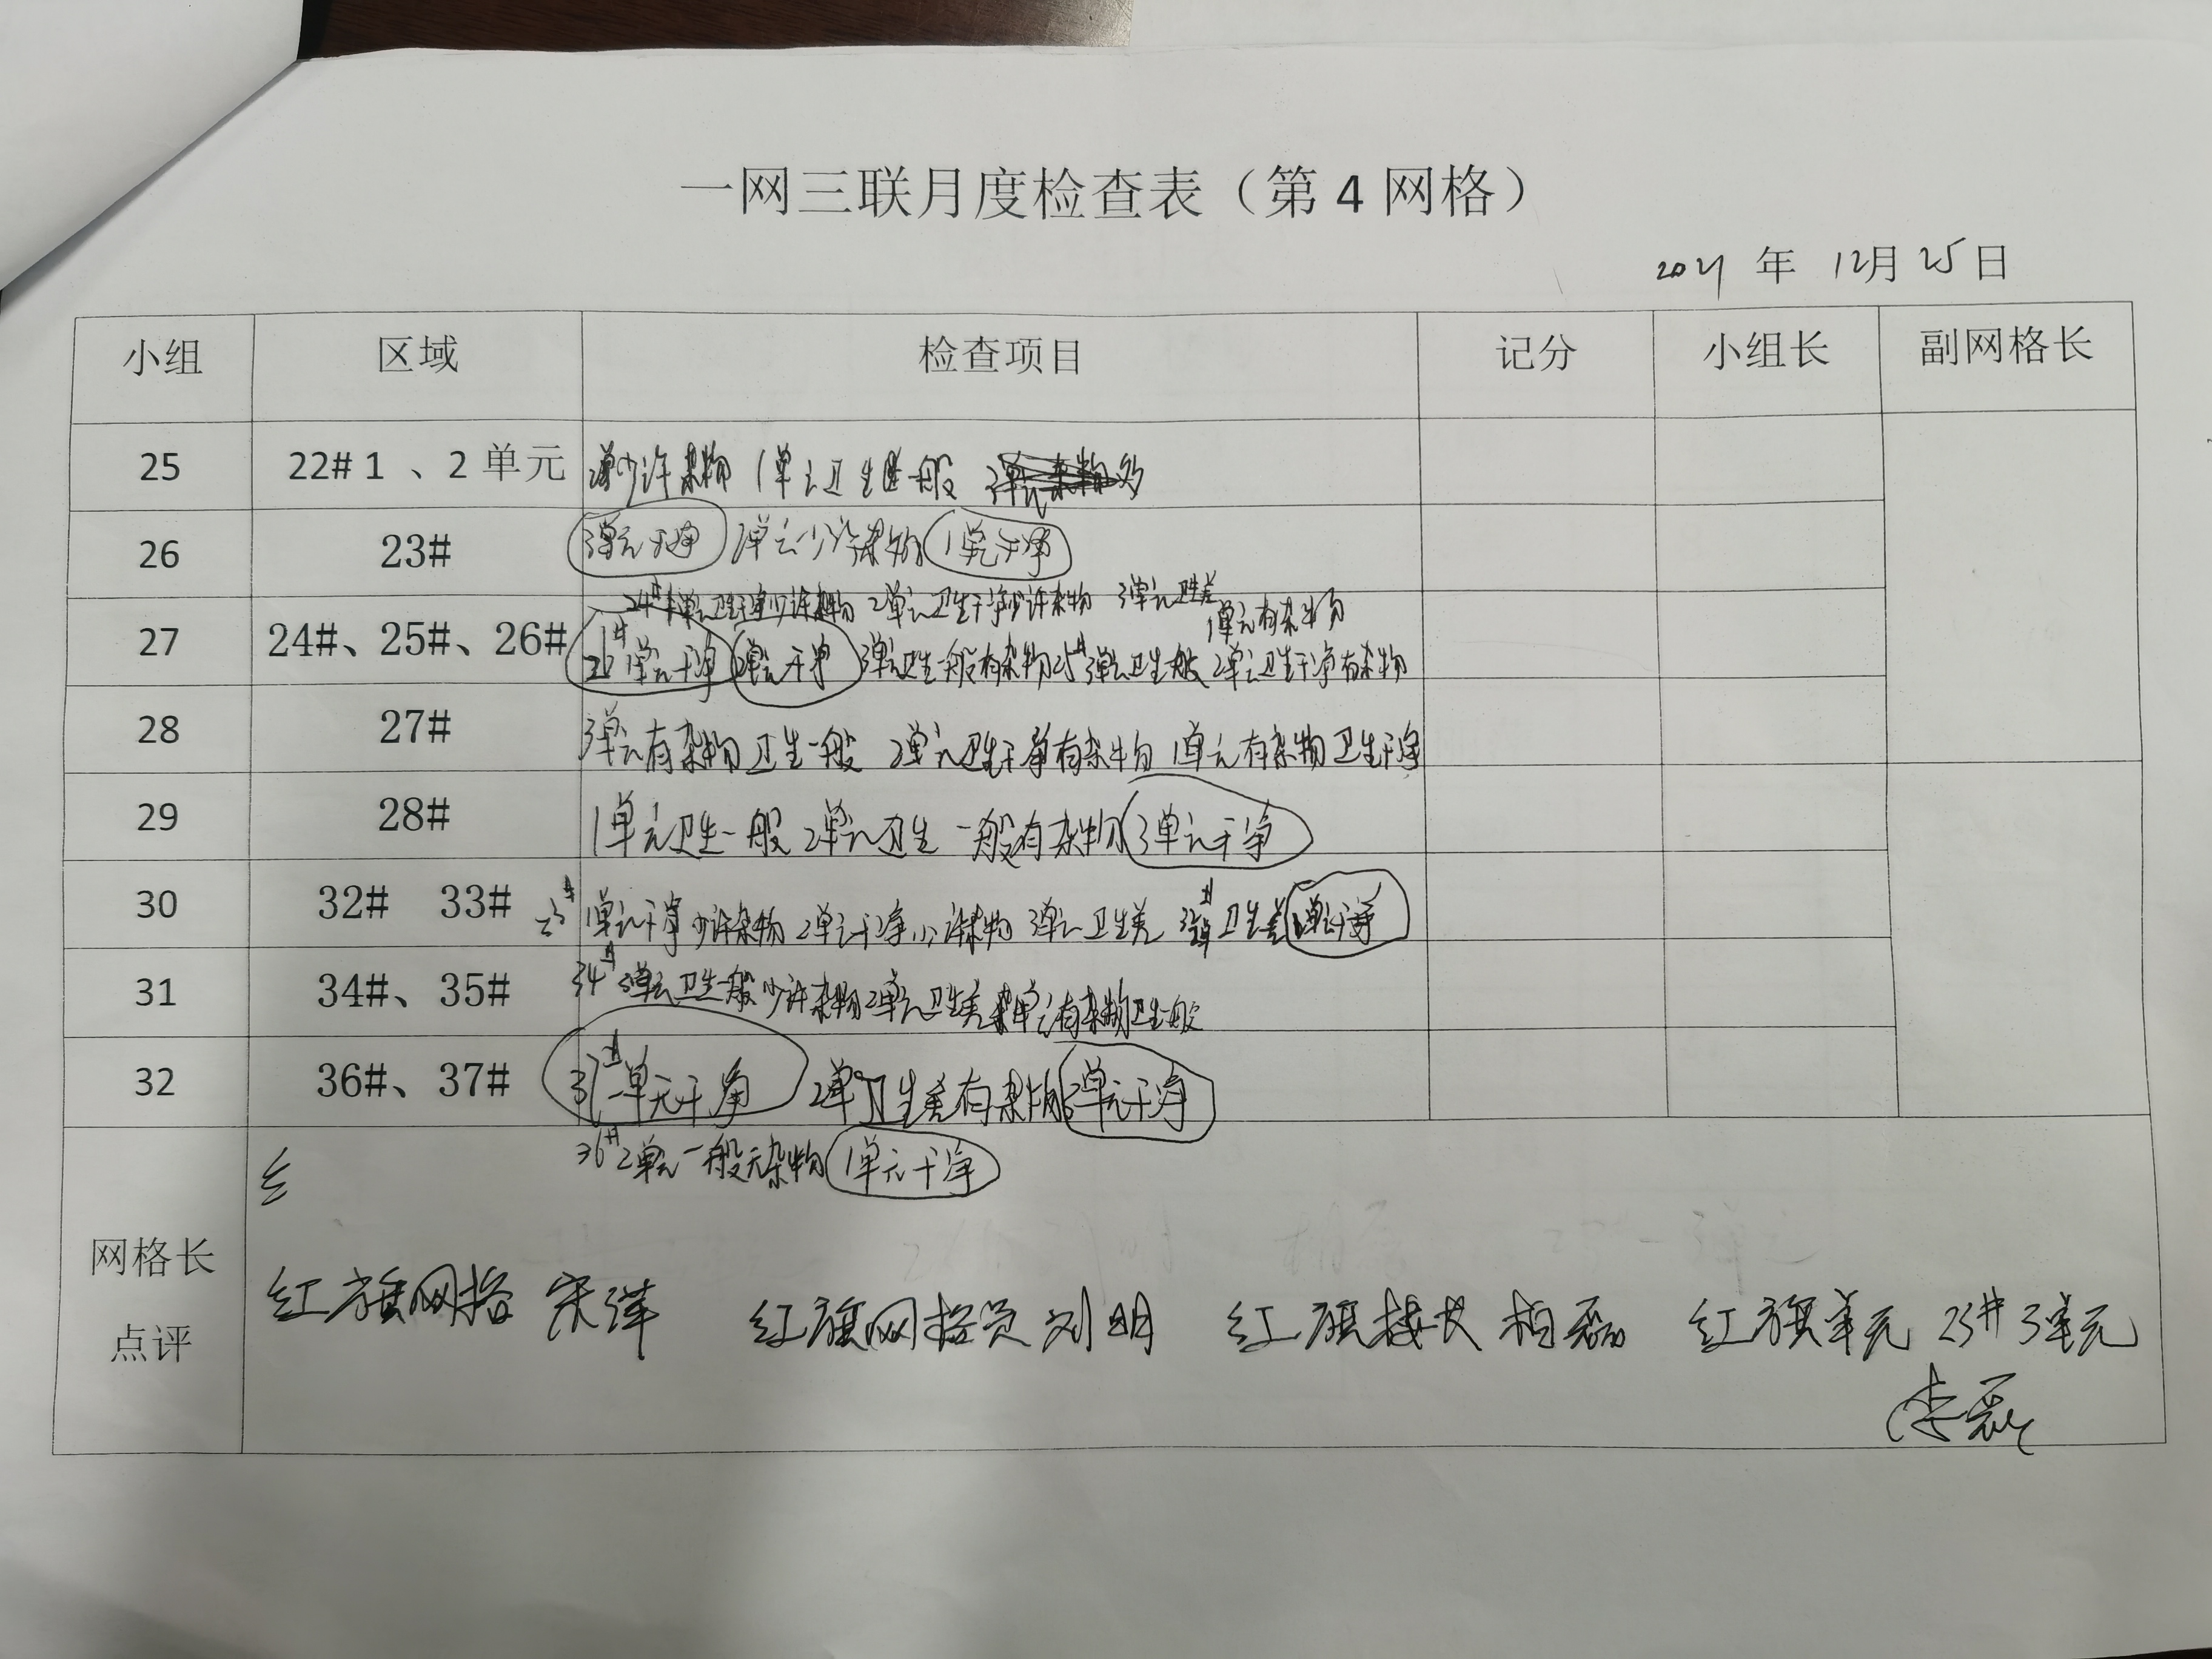 一网三联月度检查表（第4网格）
2021年 12月25日
小组 区域 检查项目 记分 小组长 副网格长
25 22# 1、2单元 少许杂物 1单元卫生一般
26 23# 3单元干净 2单元少许杂物 1单元干净
24# 1单元卫生干净少许杂物 2单元卫生干净少许杂物 3单元卫生差
1单元有杂物
27 24#、25#、26# 26# 1单元干净 2单元干净 3单元卫生一般有杂物 25# 3单元卫生一般 2单元卫生干净有杂物
28 27# 3单元有杂物卫生一般 2单元卫生干净有杂物 1单元有杂物卫生干净
29 28# 1单元卫生一般 2单元卫生一般有杂物 3单元干净
30 32# 33# 1单元干净少许杂物 2单元干净少许杂物 3单元卫生差 卫生差 单元干净
31 34#、35# 34# 3单元卫生一般少许杂物 2单元卫生差 单元有杂物卫生一般
32 36#、37# 37# 一单元干净 2单卫生差有杂物 3单元干净
36# 2单元一般无杂物 1单元干净
网格长点评
红旗网格 宋洋 红旗网格员 刘明 红旗楼长 柏磊 红旗单元 23# 3单元
李磊